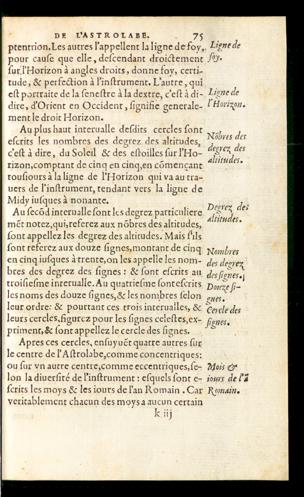 DE L'ASTROLABE. 75
ptentrion. Les autres l'appellent la ligne de foy,
pour cause que elle, descendant droictement
sur l'Horizon à angles droits, donne foy, certi-
tude, & perfection à l'instrument. L'autre, qui
est portraite de la senestre à la dextre, c'est à di-
dire, d'Orient en Occident, signifie generale-
ment le droit Horizon.
Au plus haut interualle desdits cercles sont
escrits les nombres des degrez des altitudes,
c'est à dire, du Soleil & des estoilles sur l'Ho-
rizon, comptant de cinq en cinq, en cōmençant
tousiours à la ligne de l'Horizon qui va au tra-
uers de l'instrument, tendant vers la ligne de
Midy iusques à nonante.
Au secōd interualle sont les degrez particuliere
mēt notez, qui, referez aux nōbres des altitudes,
sont appellez les degrez des altitudes. Mais s'ils
sont referez aux douze signes, montant de cinq
en cinq iusques à trente, on les appelle les nom-
bres des degrez des signes: & sont escrits au
troisiesme interualle. Au quatriesme sont escrits
les noms des douze signes, & les nombres selon
leur ordre: & pourtant ces trois interualles, &
leurs cercles, figurez pour les signes celestes, ex-
priment, & sont appellez le cercle des signes.
Apres ces cercles, ensuyuēt quatre autres sur
le centre de l'Astrolabe, comme concentriques:
ou sur vn autre centre, comme eccentriques, se-
lon la diuersité de l'instrument: esquels sont e-
scrits les moys & les iours de l'an Romain. Car
veritablement chacun des moys a aucun certain
k iij
Ligne de
foy.
Ligne de
l'Horizon.
Nōbres des
degrez des
altitudes.
Degrez des
altitudes.
Nombres
des degrez
des signes.
Douze si-
gnes.
Cercle des
signes.
Mois &
iours de l'ā
Romain.